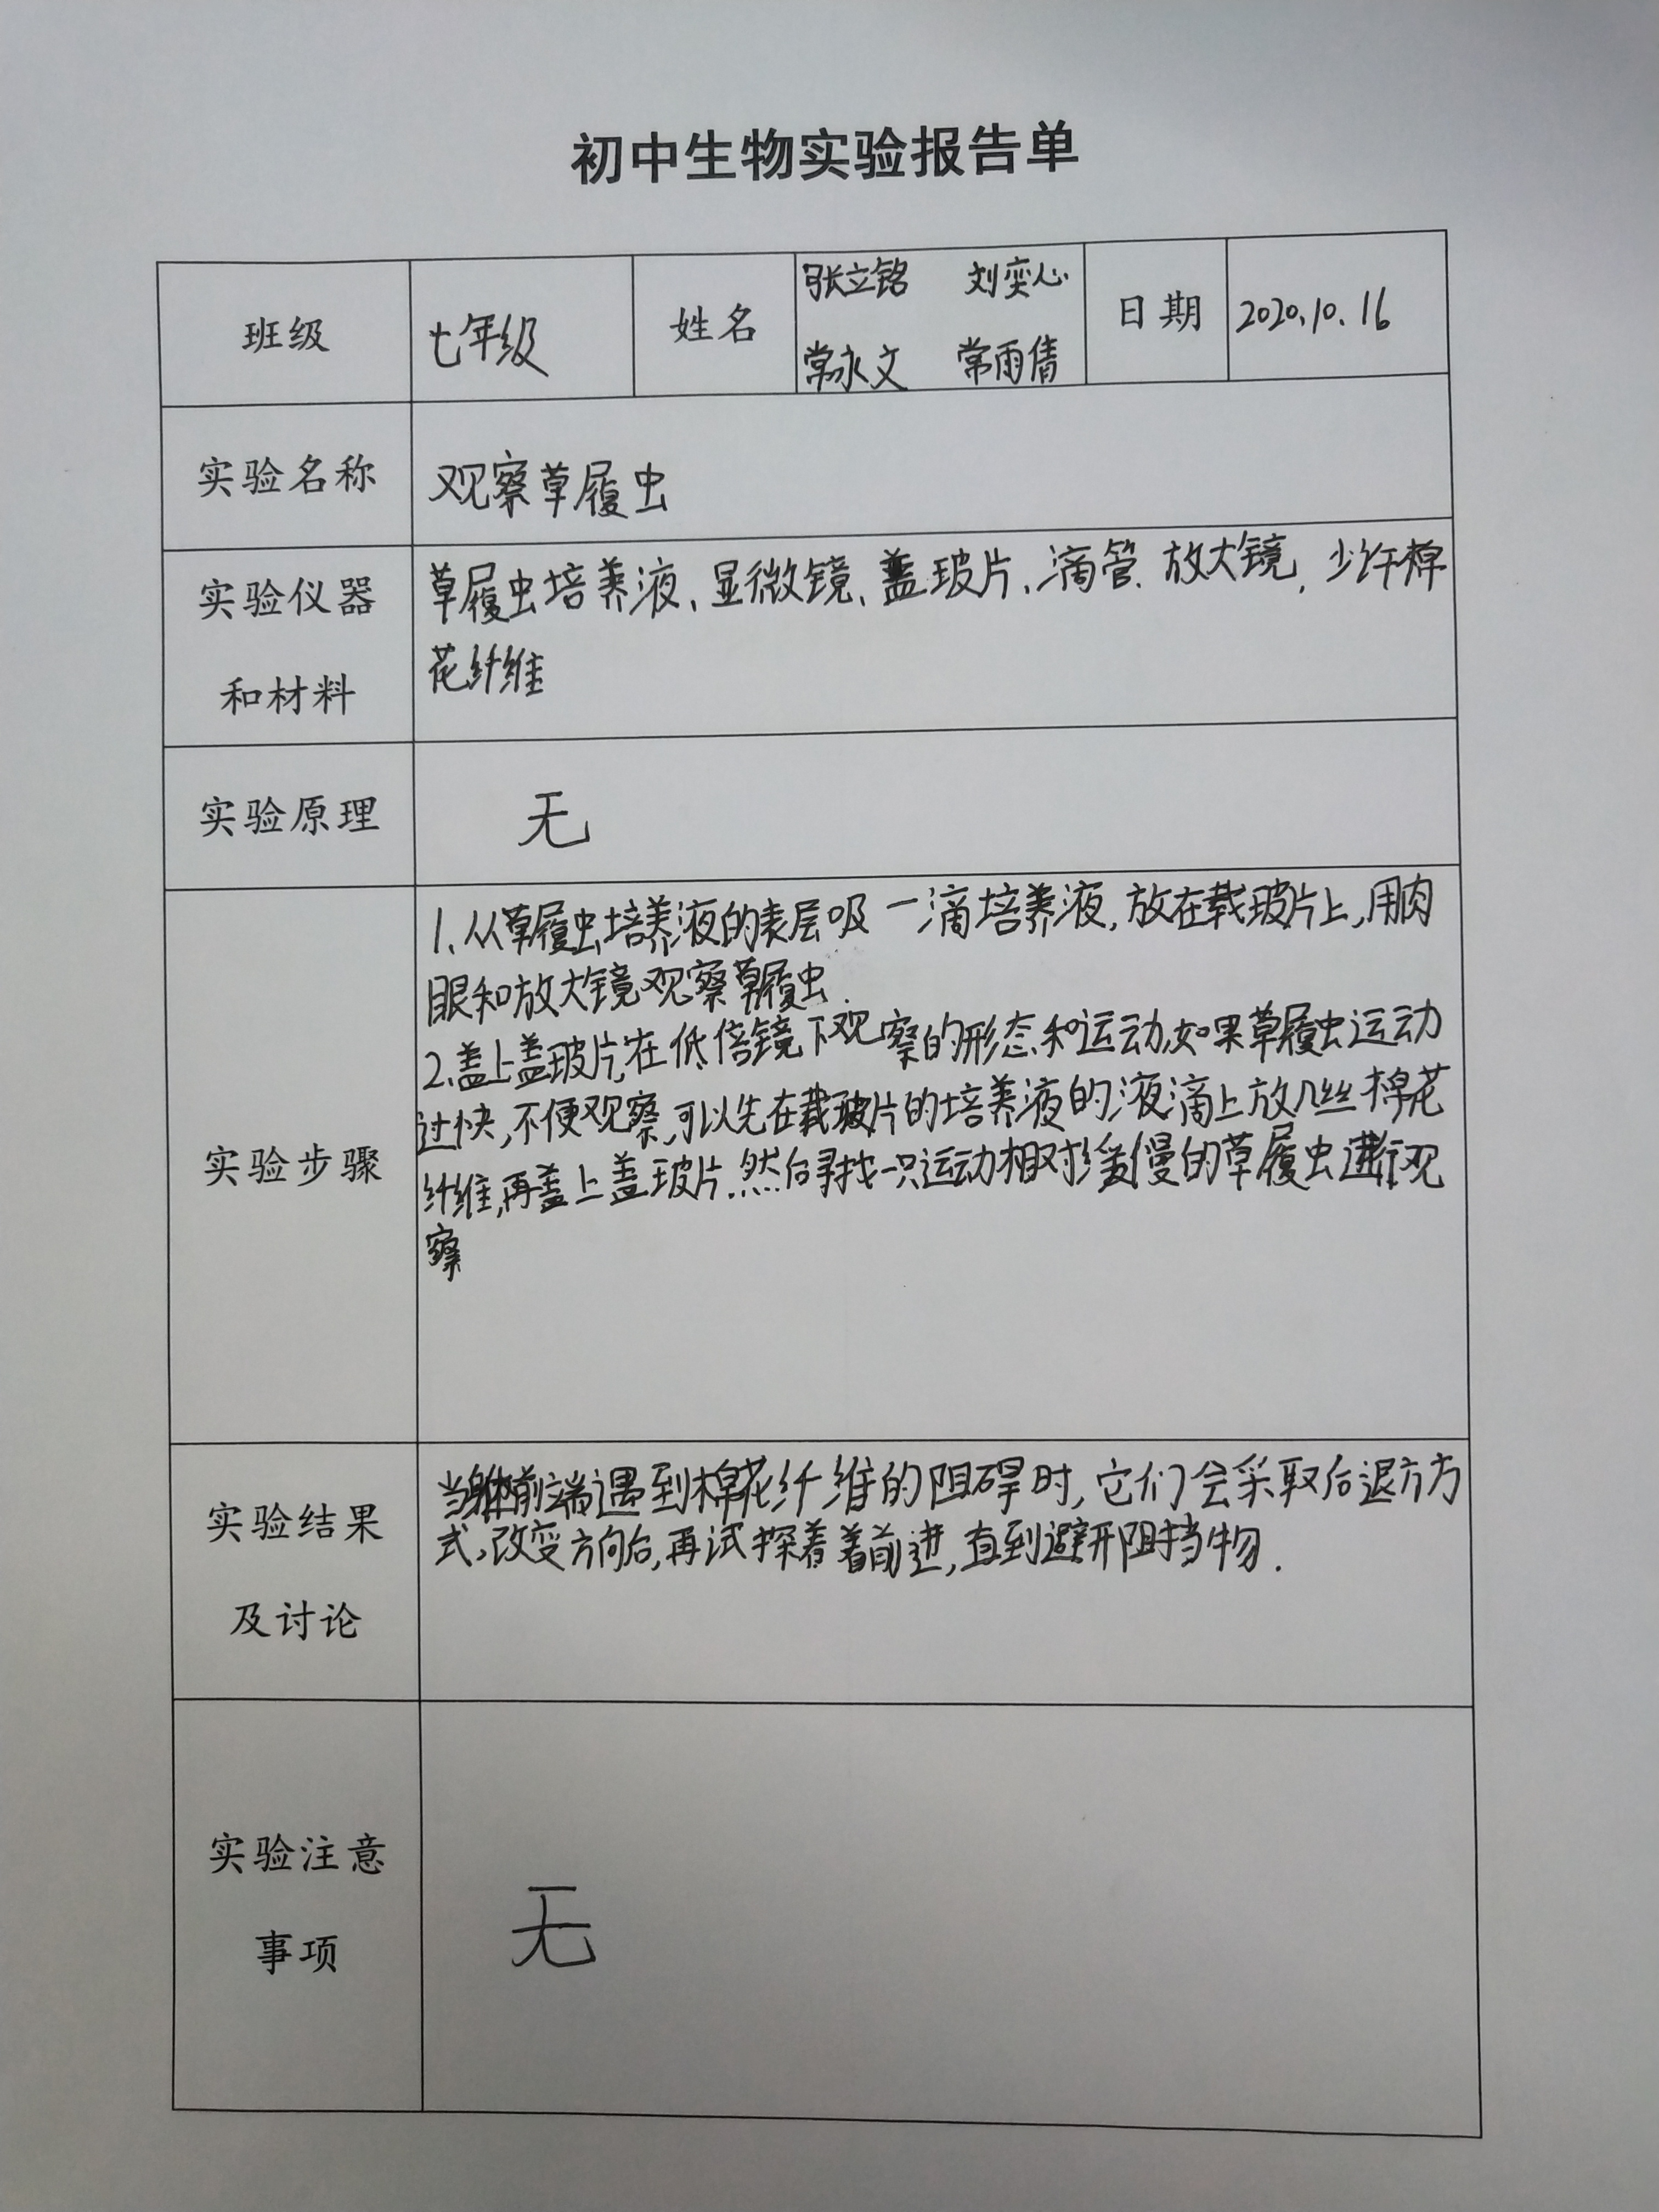 初中生物实验报告单
班级
七年级
姓名
张立铭 刘奕心
常永文 常雨倩
日期
2020.10.16
实验名称
观察草履虫
实验仪器
和材料
草履虫培养液、显微镜、盖玻片、滴管.放大镜,少许棉
花纤维
实验原理
无
实验步骤
1、从草履虫培养液的表层吸一滴培养液,放在载玻片上,用肉
眼和放大镜观察草履虫.
2、盖上盖玻片,在低倍镜下观察的形态和运动,如果草履虫运动
过快,不便观察,可以先在载玻片的培养液的液滴上放几丝棉花
纤维,再盖上盖玻片.然后寻找一只运动相对缓慢的草履虫进行观
察
实验结果
及讨论
当身体前端遇到棉花纤维的阻碍时,它们会采取后退方方
式,改变方向后,再试探着着前进,直到避开阻挡物.
实验注意
事项
无